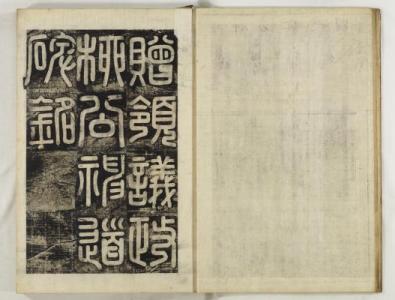 贈領議政
柳公神道
碑銘